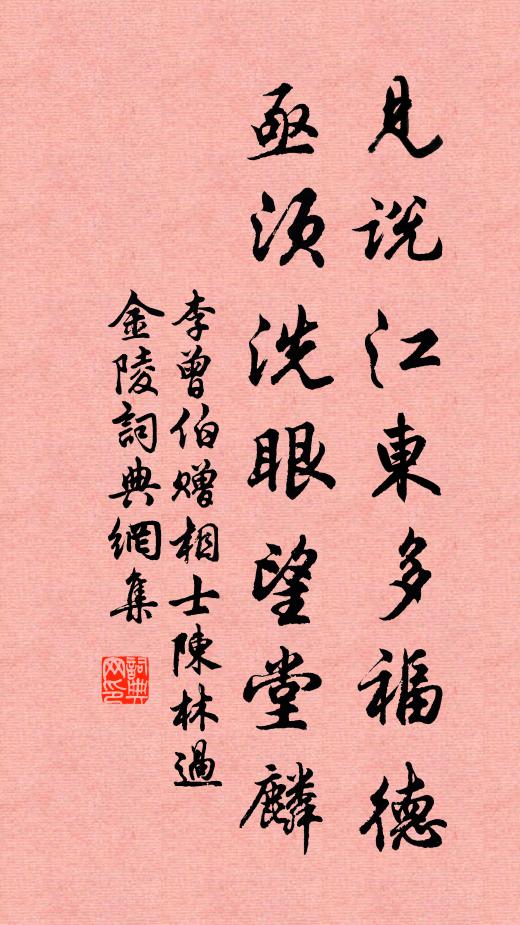 見説江東多福德
亟須洗眼望堂麟
李曾伯贈相士陳林過
金陵詞典網集
詞典网印